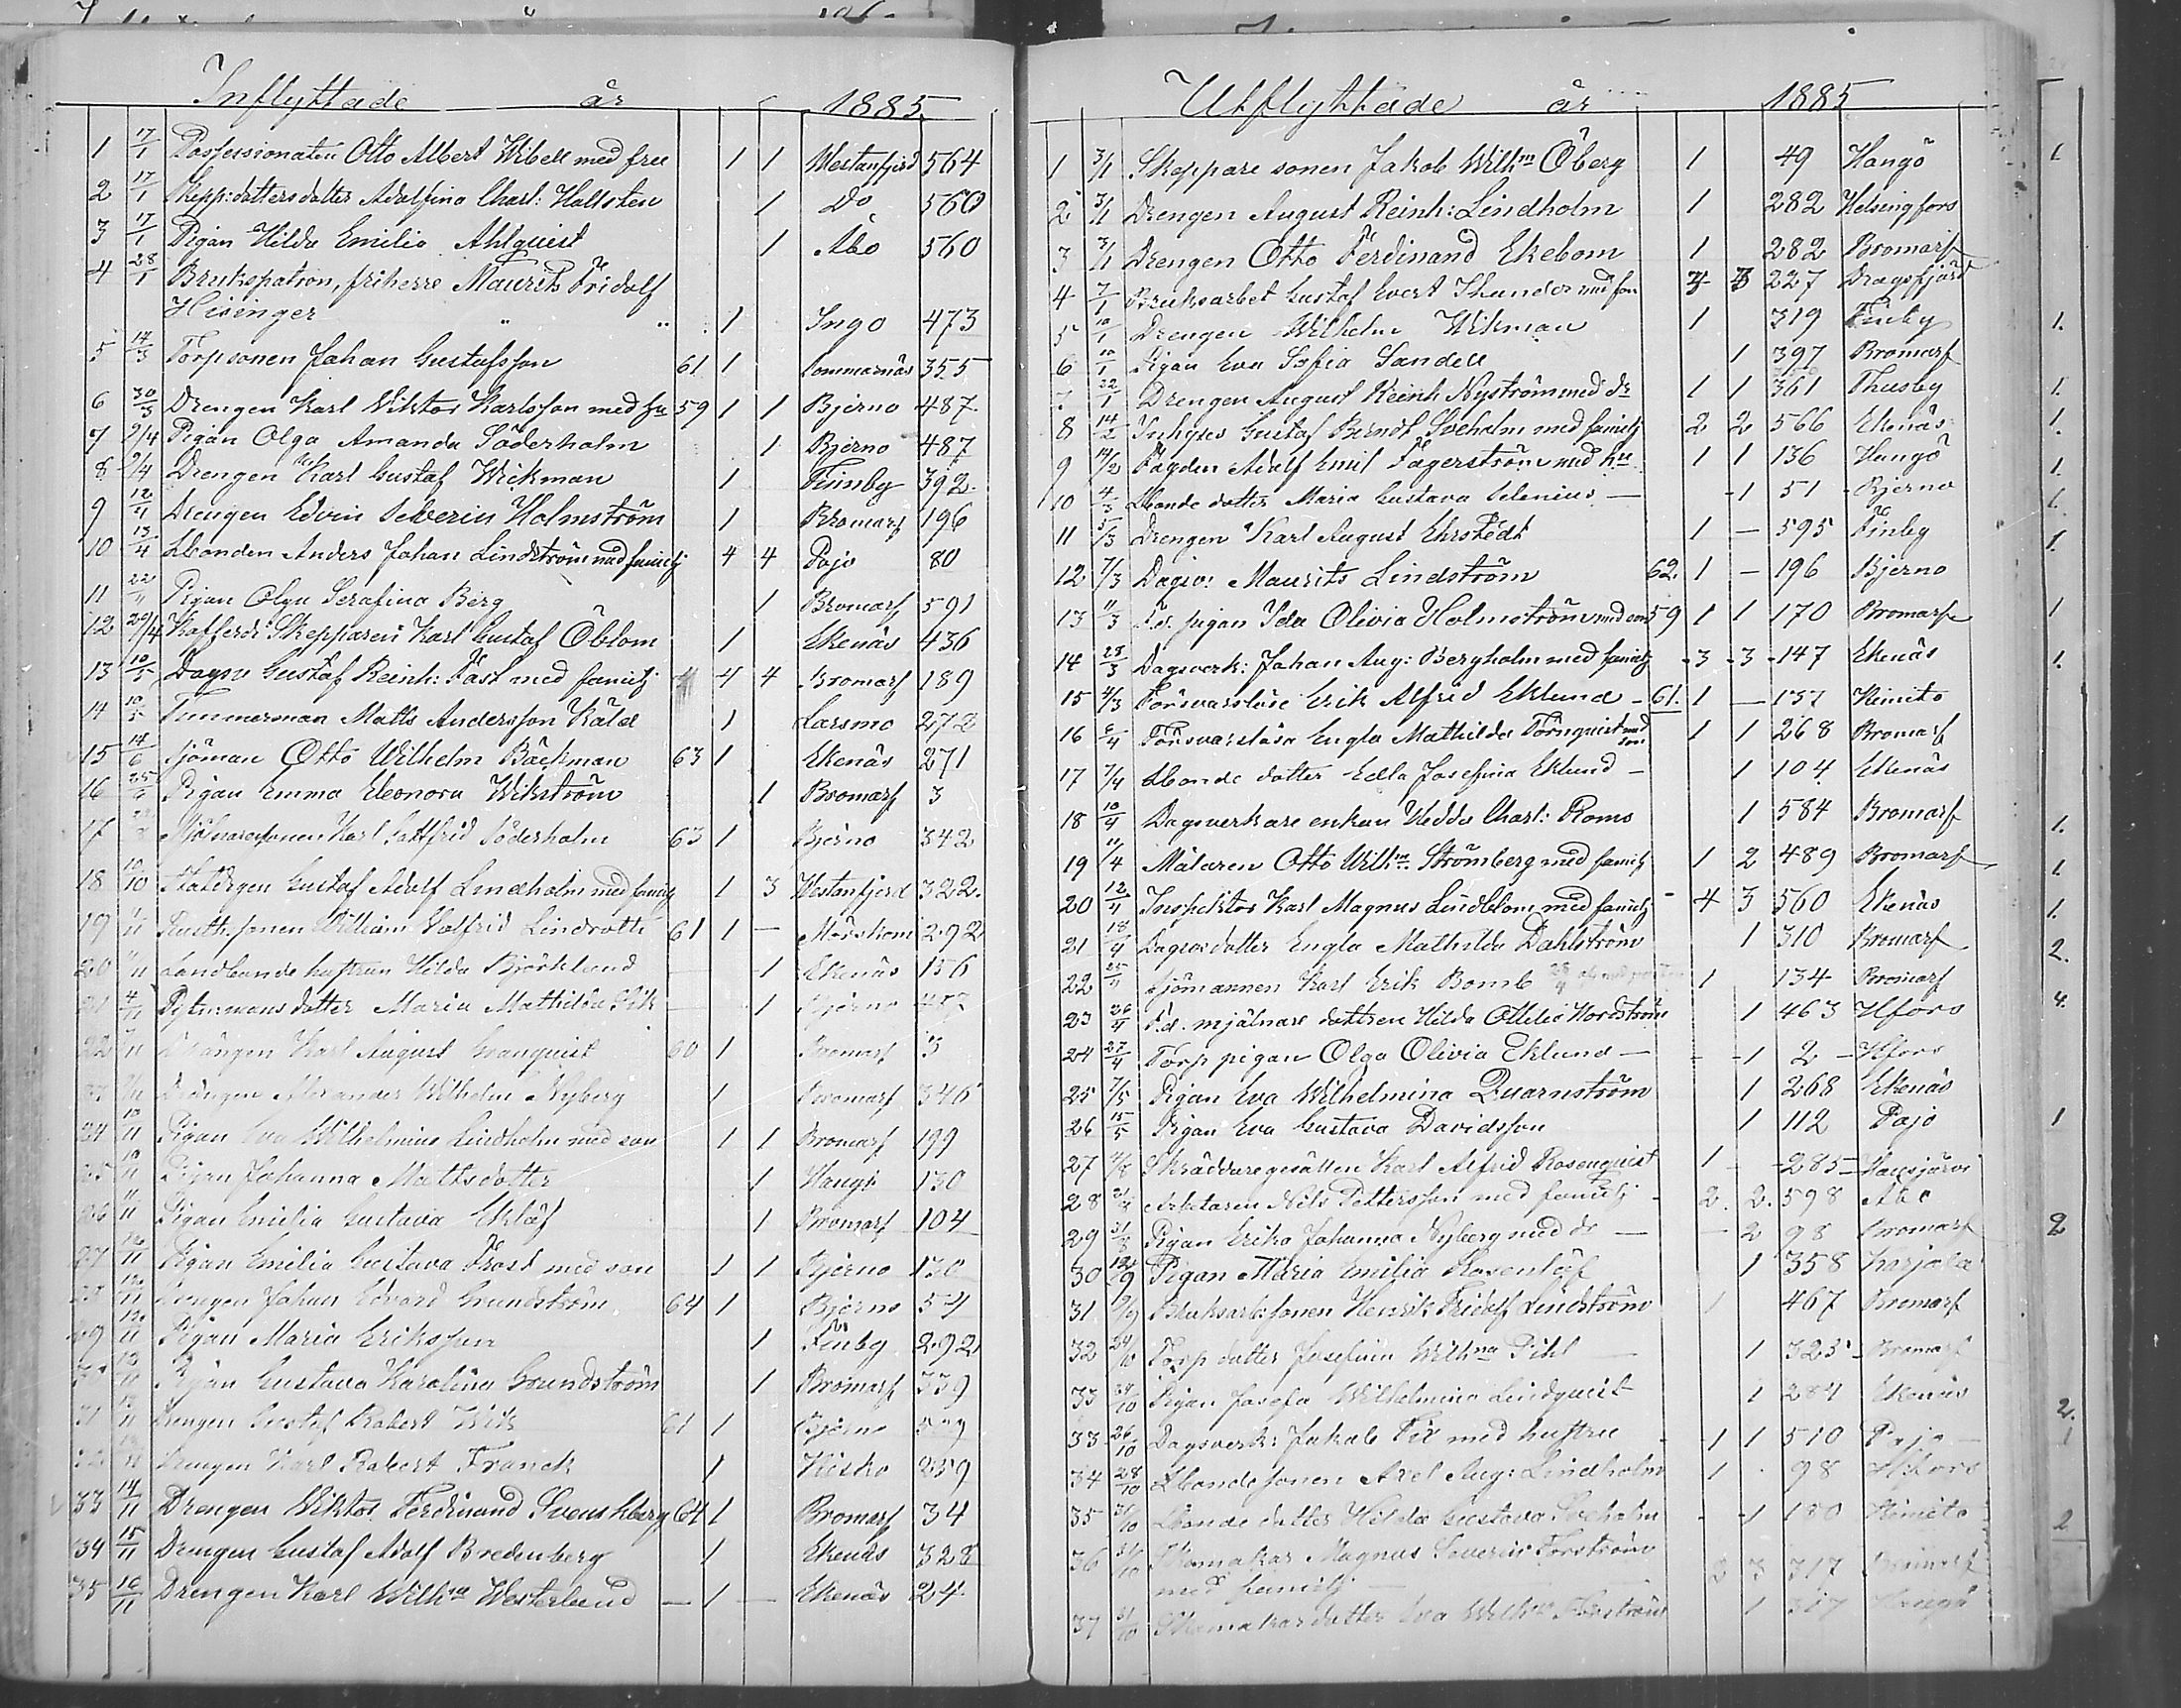 Inflyttade år 1885.
1 17/1 Possessionaten Otto Albert Wibell med fru 1 1 Westanfjerd 564
2 17/1 Skepp: dotters dotter Adolfina Charl: Hallsten 1 Do 560
3 17/1 Pigan Hilda Emilia Ahlquist 1 Åbo 560
4 28/1 Brukspatron, friherre Maurits Fridolf
Hisinger 1 Ingo 473
5 14/3 Torpsonen Johan Gustafsson 61 1 355
6 30/3 Drengen Karl Viktor Karlsson med hu 59 1 1 Bjerno 487
7 2/4 Pigan Olga Amanda Söderholm 1 Bjerno 487
8 2/4 Drengen Karl Gustaf Wickman 1 Finnby 392
9 12/4 Drengen Edvin Severin Holmström 1 Bromarf 196
10 13/4 Lbonden Anders Johan Lindström med familj 4 4 Pojo 80
11 22/4 Pigan Olga Serafina Berg 1 Bromarf 591
12 29/4 Kofferdi Skepparen Karl Gustaf Öblom 1 Ekenäs 436
13 10/5 Dagsv Gustaf Reinh: Fast med familj 4 4 Bromarf 189
14 10/5 Timmerman Matts Andersson Kåla 1 Larsmo 272
15 14/6 Sjöman Otto Wilhelm Bäckman 63 1 Ekenäs 271
16 Pigan Emma Eleonora Wikström 1 Bromarf 3
17 Mjölnaresonen Karl Gottfrid Söderholm 63 1 Bjerno 342
18 10/10 Staldrgen Gustaf Adolf Lindholm med familj 1 3 Westanfjerd 322.
19 1/11 Rusth. sonen William Valfrid Lindroth 61 1 — 292
20 1/11 Landbonde hustrun Hilda Björklund 1 Ekenäs 156
21 4/11 dotter Maria Mathilda 1 Bjerno
22 Drängen Karl August Granquist 60 1 Bromarf 3
Drängen Alexander Wilhelm Nyberg 1 Bromarf 346
24 10/11 Pigan Eva Wilhelmina Lindholm med son 1 1 Bromarf 199
25 10/11 Pigan Johanna Mattsdotter 1 Hangö 130
26 11/11 Pigan Emilia Gustava Eklöf 1 Bromarf 104
27 12/11 Pigan Emilia Gustava Frost med son 1 1 Bjerno 130
28 12/11 Drengen Johan Edvard Grundström 64 1 Bjerno 54
29 12/11 Pigan Maria Eriksson 1 Finby 292
Pigan Gustava Karolina Grundström 1 Bromarf 339
31 Drengen Gustaf Robert Wik 61 1 Bjerno
Drengen Karl Robert Franck 1 Kisko 259
33 14/11 Drengen Viktor Ferdinand Svenskberg 64 1 Bromarf 34
34 15/11 Drengen Gustaf Adolf Bredenberg 1 Ekenäs 328
35 16/11 Drengen Karl Wilhm Westerlund — 1 — Ekenäs 24
Utflyttade år 1885
1 3/1 Skeppare sonen Jakob Wilhm Öberg 1 49 Hangö
2 3/1 Drengen August Reinh: Lindholm 1 282 Helsingfors
3 3/1 Drengen Otto Ferdinand Ekebom 1 282 Bromarf
4 7/1 Bruksarbet Gustaf Evert 227 Dragsfjärd
5 10/1 Drengen Wilhelm Wikman 1 319 Finby
6 10/1 Pigan Eva Sofia Sandell 1 397 Bromarf
7 22/1 Drengen August Reinh Nyström med dr 1 1 361 Thusby
8 14/2 Inhyses Gustaf Berndt Sveholm med familj 2 2 566 Ekenäs
9 14/2 Adolf Emil Fagerström med hu 1 1 136 Hangö
10 4/3 Lbonde dotter Maria Gustava Selenius — -1 51 Bjerno
11 5/3 Drengen Karl August Ehrstedt 1 — 595 Finby
12 7/3 Dagsv: Maurits Lindström 62. 1 — 196 Bjerno
13 11/3 F.d. pigan Ida Olivia Holmström med son 59 1 1 170 Bromarf
14 28/3 Dagsverk: Johan Aug: Bergholm med familj 3 3 147 Ekenäs
15 4/3 Försvarslöse Erik Alfred Eklund 61. 1 — 137 Kimito
16 6/4 Försvarslösa Engla Mathilda Törnquist med son 1 1 268 Bromarf
17 7/4 Lbonde dotter Edla Josefina Eklund — 1 104 Ekenäs
18 10/4 Dagsverkare enkan Hedda Charl: Roms 1 584 Bromarf
19 11/4 Målaren Otto Wilhm Strömberg med familj 1 2 489 Bromarf
20 12/4 Inspektor Karl Magnus Lindblom med familj 4 3 560 Ekenäs
21 18/4 Dagsv dotter Engla Mathilda Dahlström 1 310 Bromarf
22 25/4 Sjömannen Karl Erik Bomb 1 134 Bromarf
23 26/4 F.d. mjölnare dottren Hilda Ottilia Nordström 1 463 Hfors
24 27/4 Torp pigan Olga Olivia Eklund — 1 2 Hfors
25 7/5 Pigan Eva Wilhelmina Quarnström 1 268 Ekenäs
26 15/5 Pigan Eva Gustava Davidsson 1 112 Pojo
27 Skräddare gesällen Karl Alfrid Rosenquist 1 285 Hausjärvi
28 Arbetaren Nils Pettersson med familj 2. 2. 598 Åbo
29 31/8 Pigan Erika Johanna Nyberg med dr — 2 98 Bromarf
30 Pigan Maria Emilia Rosenlöf 1 358 Karjala
31 9/9 Bruksarb: sonen Henrik Fridolf Lindström 1 467 Bromarf
32 24/10 Torp dotter Josefina Wilhma Pihl 1 325 Bromarf
33 24/10 Pigan Josefa Wilhelmina Lindquist 1 284 Ekenäs
33 26/10 Dagsverk: Jakob Fix med hustru 1 1 510 Pojo
34 28/10 Lbonde sonen Axel Aug: Lindholm 1 98 Hfors
35 31/10 Lbonde dotter Hilda Gustava Sveholm 1 180 Kimito
36 31/10 Skomakar Magnus Severin Forström
med familj 2 3 317 Bromarf
37 31/10 Skomakar dotter Eva Wilhma Forström 1 317 Hangö